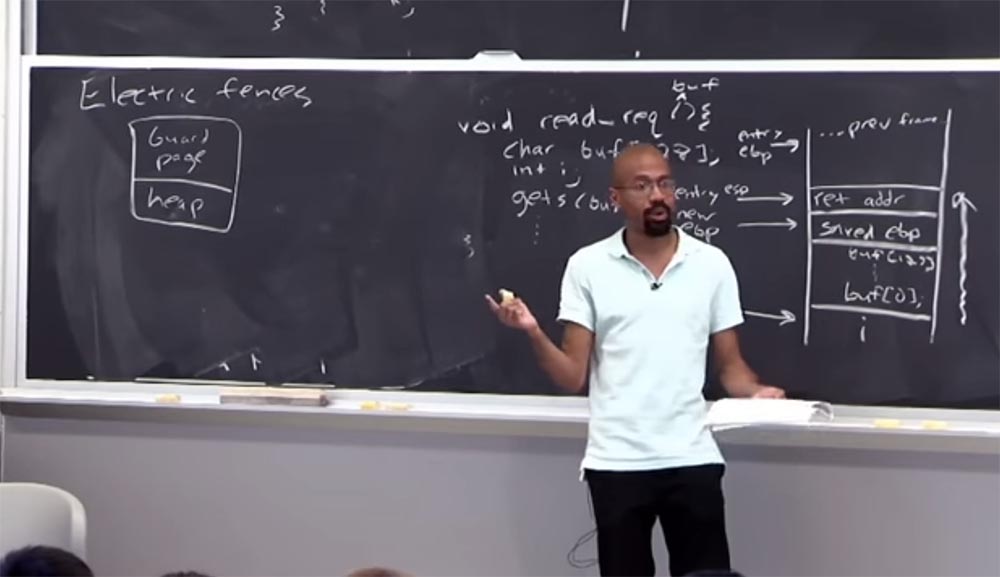 Electric fences
Guard
page
heap
buf
void read_req () {
char buf[128];
int i;
gets(bu
}
entry
ebp
entry esp
new
ebp
...prev frame
ret addr
saved ebp
buf[127]
buf[0];
i